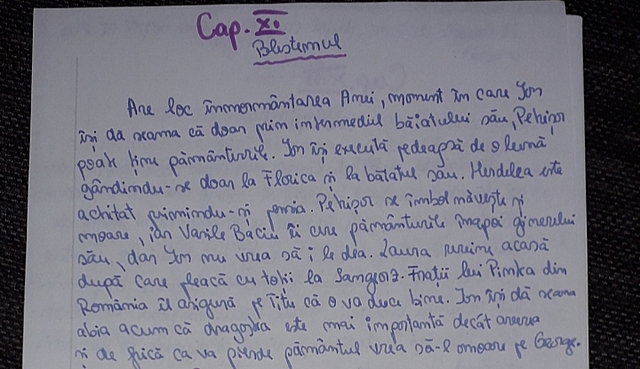 Cap. XI.
Blestemul
Are loc înmormântarea Anei, moment în care Ion
își dă seama că doar prin intermediul băiatului său, Petrișor
poate ține pământurile. Ion își execută pedeapsa de o lună
gândindu-se doar la Florica și la băiatul său. Herdelea este
achitat primindu-și pensia. Petrișor se îmbolnăvește și
moare, iar Vasile Baciu îi cere pământurile înapoi ginerelui
său, dar Ion nu vrea să i le dea. Laura revine acasă
după care pleacă cu toții la Sangeorz. Frații lui Pintea din
România îl asigură pe Titu că o va duce bine. Ion își dă seama
abia acum că dragostea este mai importantă decât averea
și de frică ca va pierde pământul vrea să-l omoare pe George.